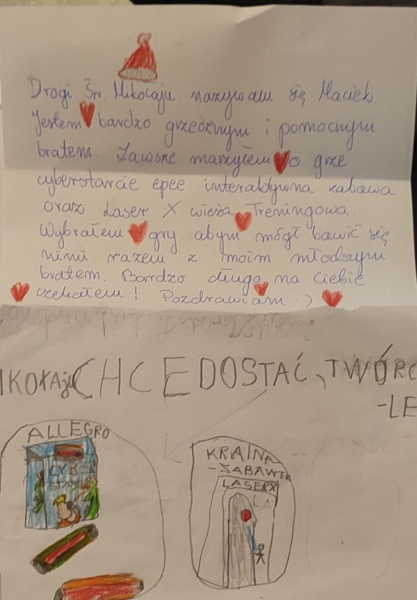 Drogi Św. Mikołaju nazywam się Maciek
Jestem bardzo grzecznym i pomocnym
bratem. Zawsze marzyłem o grze
cyberstarcie epee interaktywna zabawa
oraz Laser X wieża Treningowa.
Wybrałem gry abym mógł bawić się
nimi razem z moim młodszym
bratem. Bardzo długo na Ciebie
czekałem! Pozdrawiam :)
IKOŁAJU CHCE DOSTAĆ, TWÓRC
-LE
ALLEGRO
CYBER
KRAINA
-ZABAWEK
LASERX
LA